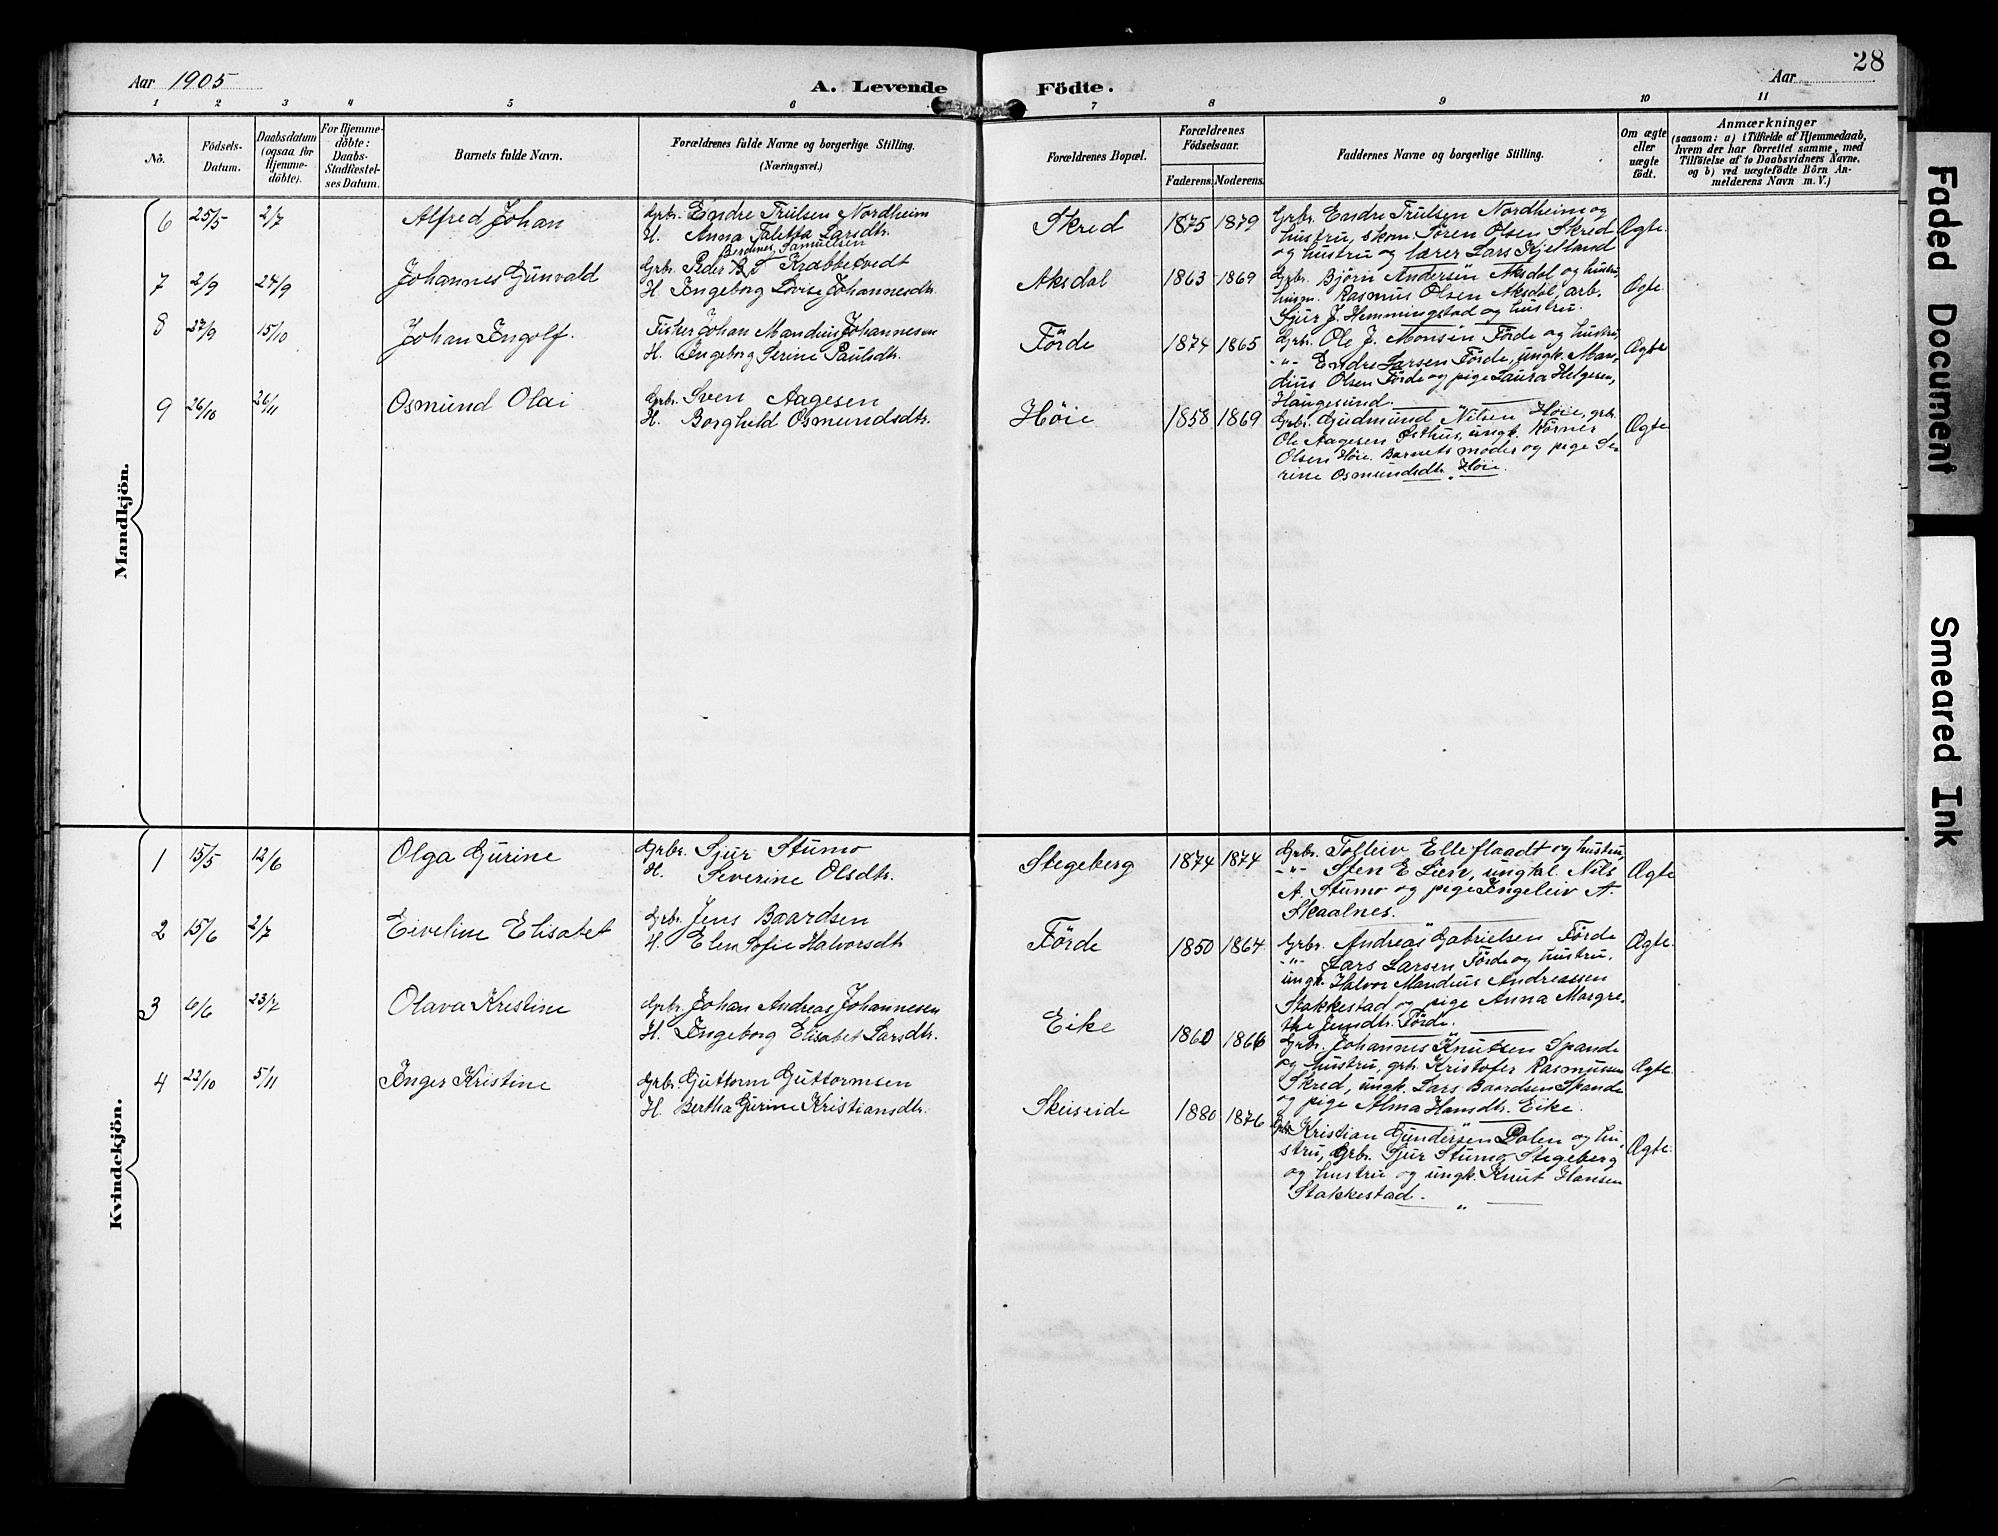 Aar 1905
A. Levende Födte.
Aar
28
1 2 3 4 5 6 7 8 9 10 11
No.
Födsels-
Datum.
Daabsdatum
(ogsaa for
Hjemme-
döbte).
For Hjemme-
döbte:
Daabs-
Stadfæstel-
ses Datum.
Barnets fulde Navn.
Forældrenes fulde Navne og borgerlige Stilling.
(Næringsvei.)
Forældrenes Bopæl.
Forældrenes
Födselsaar.
Faderens. Moderens.
Faddernes Navne og borgerlige Stilling.
Om ægte
eller
uægte
födt.
Anmærkninger
(saasom: a) i Tilfælde af Hjemmedaab,
hvem der har forrettet samme, med
Tilföielse af to Daabsvidners Navne,
og b) ved uægtefödte Börn An-
melderens Navn m. V.)
Mandkjön.
6 25/5 2/7 Alfred Johan
Grbr. Endre Trulsen Nordheim
H. Anna Taletta Larsdtr.
Skred 1875 1879
Grbr. Endre Trulsen Nordheim og
hustru, skom. Sören Olsen Skred
og hustru og lærer Lars Kjelland
Ægte.
7 2/9 24/9 Johannes Gunvald
Samuelsen
Grbr. Peder Krabbetvedt
H. Ingeborg Lovise Johannesdtr.
Aksdal 1863 1869
Grbr. Björn Andersen Aksdal og hustru,
husm. Rasmus Olsen Aksdal, arb.
Sjur J. Hemmingstad og hustru.
Ægte
8 27/9 15/10 Johan Ingolf.
Fisker Johan Mandius Johannesen
H. Ingeborg Serine Paulsdtr.
Förde 1874 1865
Grbr. Ole J. Monsen Förde og hustru,
-"- Endre Larsen Förde, ungk. Man-
dius Olsen Förde og pige Laura Helgesen,
Haugesund.
Ægte
9 26/10 26/11 Osmund Olai
Grbr. Sven Aagesen
H. Borghild Osmundsdtr.
Höie 1858 1869
Grbr. Gudmund Nilsen Höie, grbr.
Ole Aagesen Östhus, ungk. Körner
Olsen Höie. Barnets moder og pige Se-
rine Osmundsdtr. Höie.
Ægte
Kvindekjön.
1 15/5 12/6 Olga Gurine
Grbr. Sjur Stumo
H. Severine Olsdtr.
Stegeberg 1874 1874
Grbr. Tolleiv Elleflaadt og hustru,
-"- Sten E Lien, ungkal. Nils
A. Stumo og pige Ingeleiv A.
Skaalnes.
Ægte
2 15/6 2/7 Eiveline Elisabet
Grbr. Jens Baardsen
H. Elen Sofie Halvorsdtr
Förde 1850 1864
Grbr. Andreas Gabrielsen Förde
-"- Lars Larsen Förde og hustru,
ungk. Halvor Mandius Andreassen
Stakkestad og pige Anna Margre-
the Jensdtr. Förde.
Ægte.
3 6/6 23/7 Olava Kristine
Grbr. Johan Andreas Johannesen
H. Ingeborg Elisabet Larsdtr.
Eike 1860 1866
Grbr. Johannes Knutsen Spande
og hustru, grbr. Kristofer Rasmussen
Skred, ungk. Lars Baardsen Spande
og pige Alma Hansdtr. Eike.
Ægte.
4 22/10 5/11 Inger Kristine
Grbr. Guttorm Guttormsen
H. Bertha Gurine Kristiansdtr.
Skeiseide 1880 1876
Grbr. Kristian Gundersen Dalen og hu-
stru, Grbr. Sjur Stumo Stegeberg
og hustru og ungk. Knut Hansen
Stakkestad.
Ægte.
Faded Document
Smeared Ink